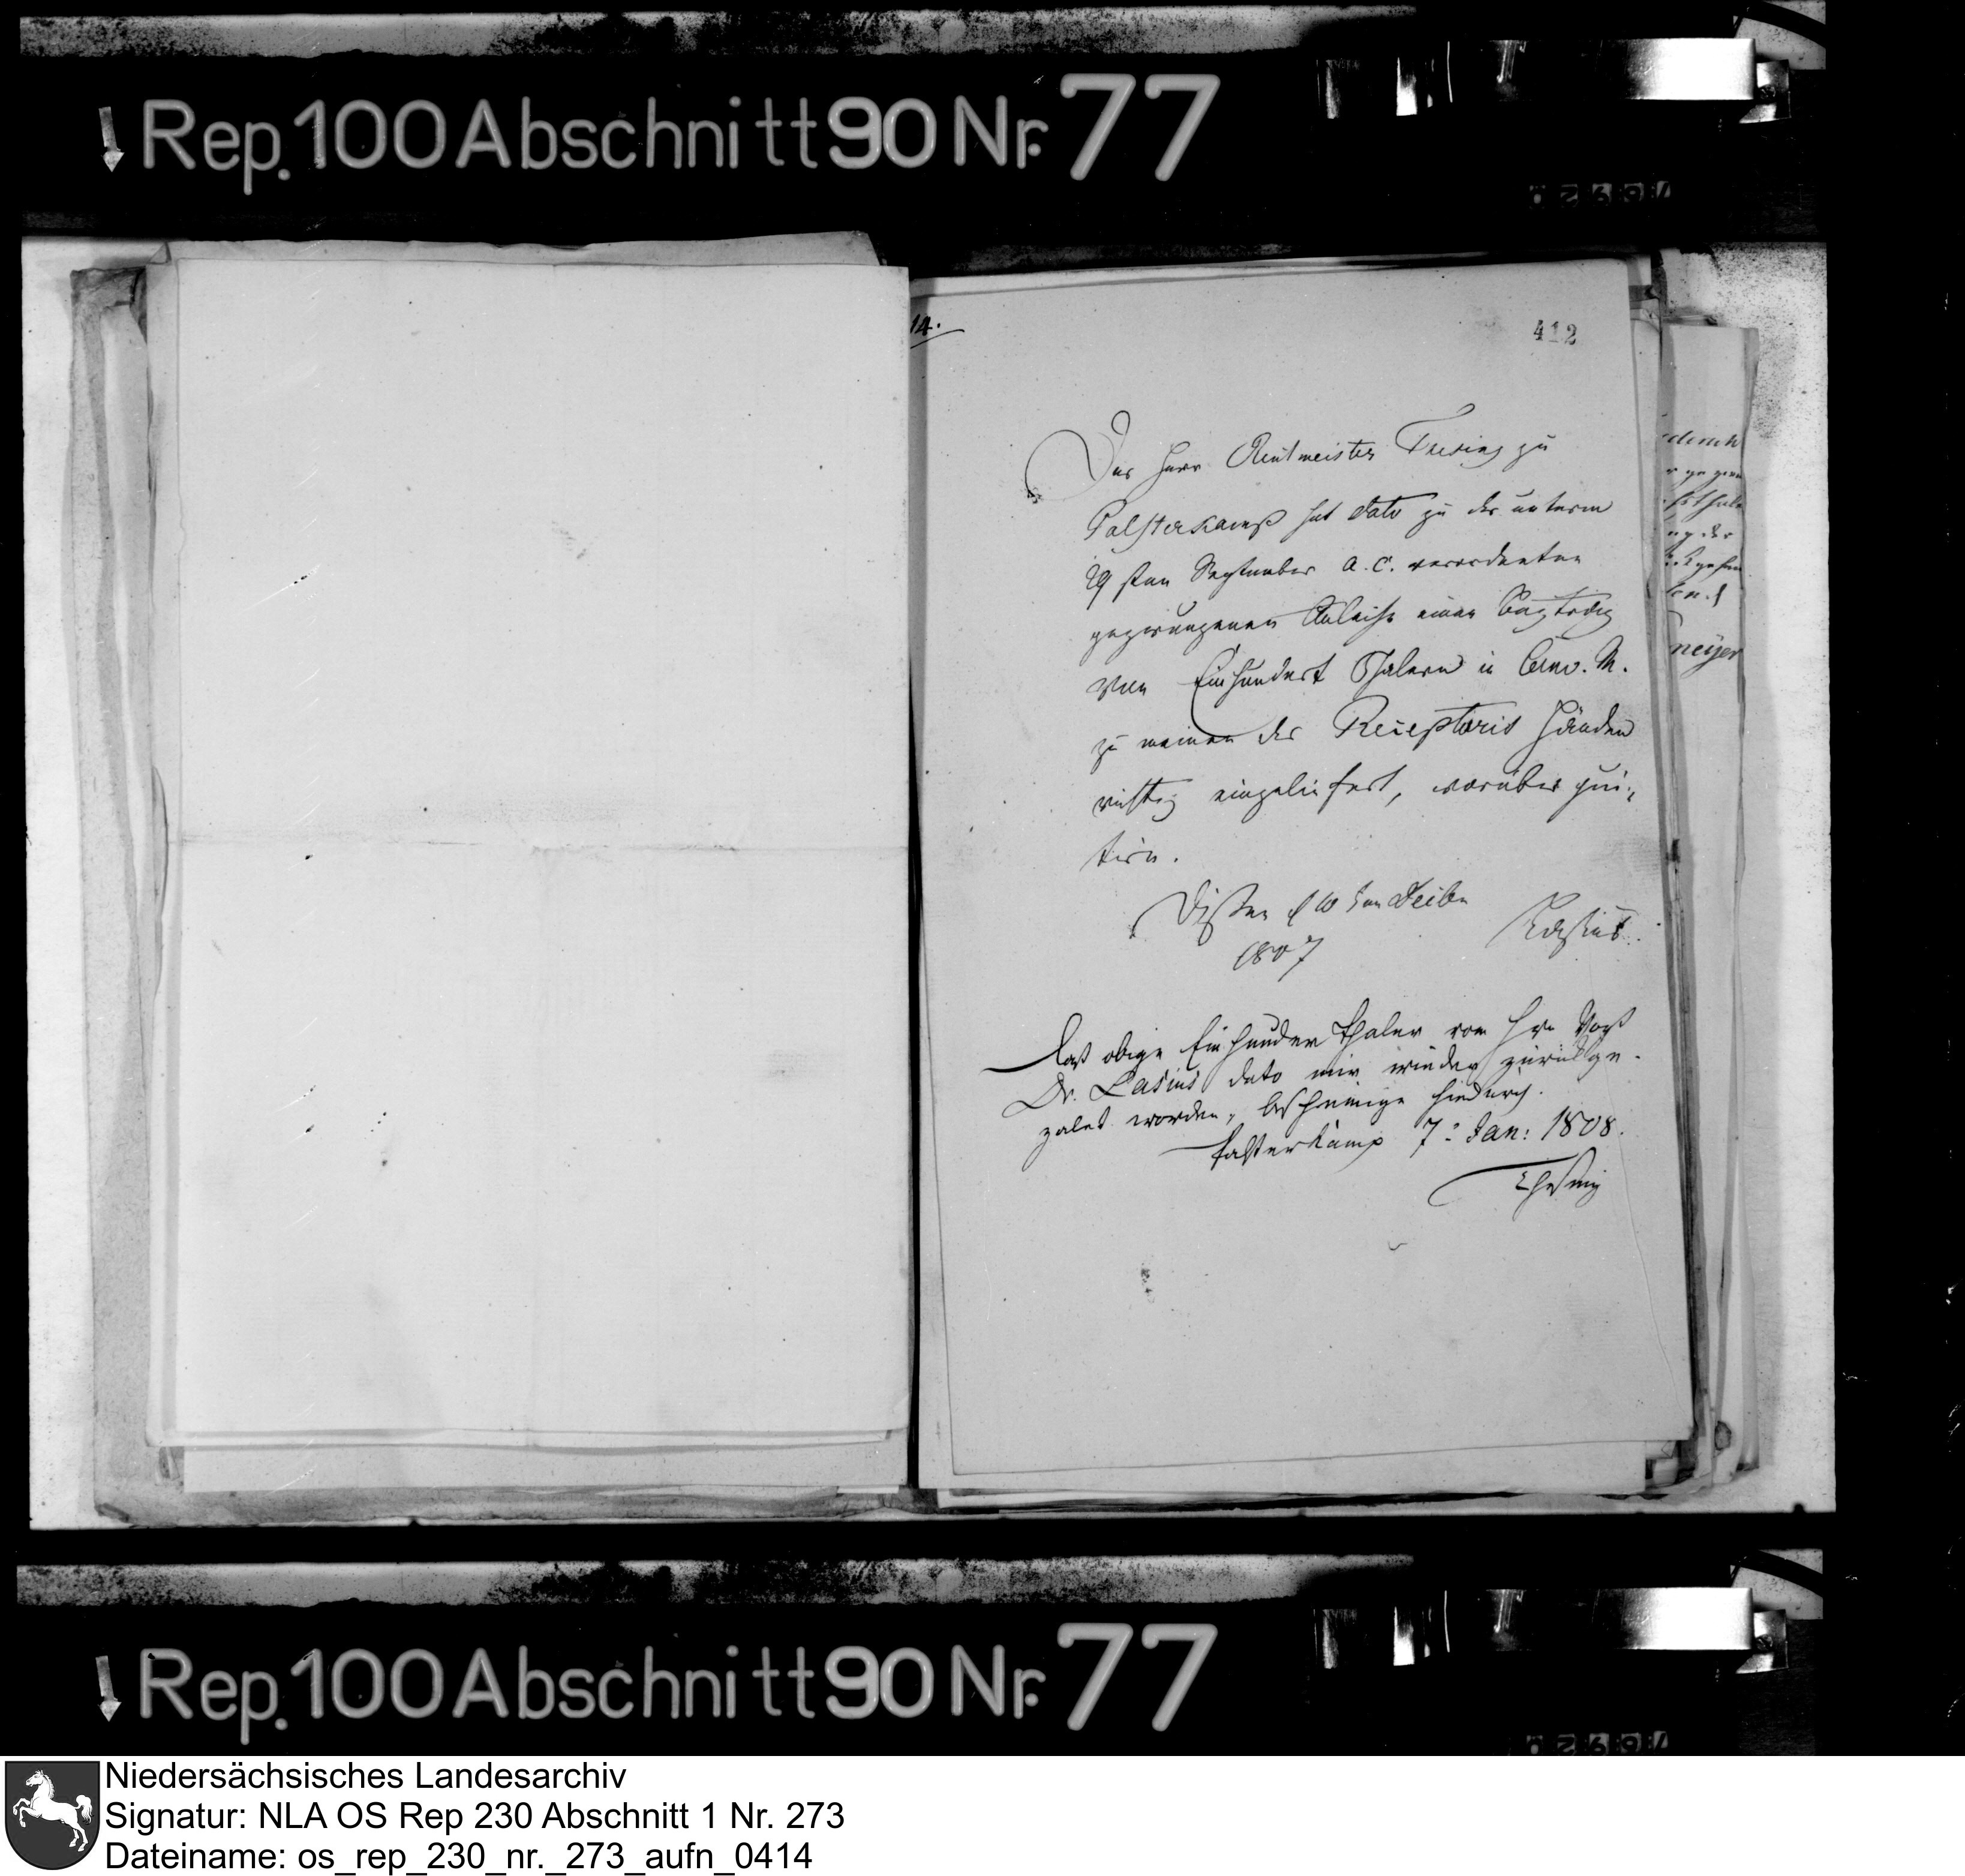 Rep. 100 Abschnitt 90 Nr. 77
14.
412
Der Herr Rentmeister Thesing zu
Palsterkamp hat dato zu der unterm
29 sten September a. c. verordneten
gezwungenen Anleihe einen Beytrag
von Einhundert Thalern in Conv. M.
zu meinen des Receptoris Händen
richtig eingeliefert, worüber qui-
tire.
Dissen d 10 ten
1807
Lasius
Daß obige Einhundert Thaler von Hrn Vogt
Dr. Lasius dato mir wieder zurückge-
zalet worden, bescheinige hiedurch.
Palsterkamp 7: Jan: 1808.
Thesing
neijer
Rep. 100 Abschnitt 90 Nr. 77
Niedersächsisches Landesarchiv
Signatur: NLA OS Rep 230 Abschnitt 1 Nr. 273
Dateiname: os_rep_230_nr._273_aufn_0414